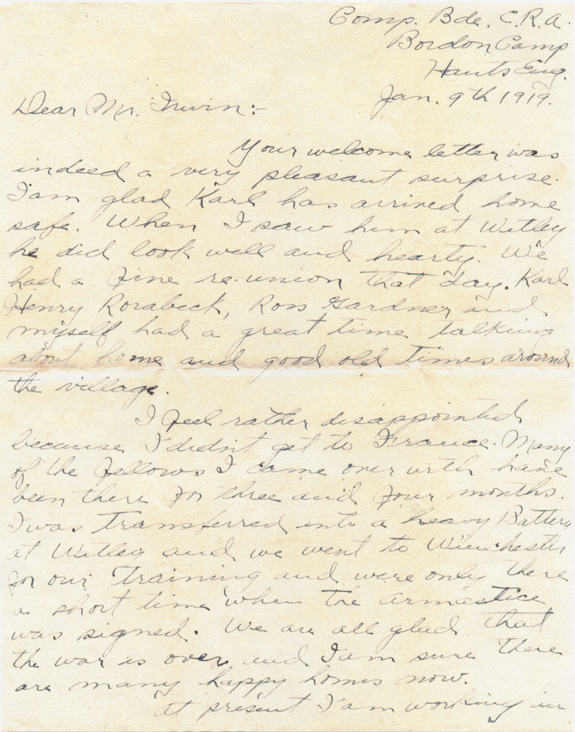 Comp. Bde. C.R.A.
Bordon Camp
Hants Eng.
Jan. 9th 1919.
Dear Mr. Irwin:-
Your welcome letter was
indeed a very pleasant surprise.
I am glad Karl has arrived home
safe. When I saw him at Witley
he did look well and hearty. We
had a fine re-union that day. Karl
Henry Rorabeck, Ross Gardner and
myself had a great time talking
about home and good old times around
the village.
I feel rather disappointed
because I didn't get to France. Many
of the fellows I came over with have
been there for three and four months.
I was transferred into a heavy Battery
at Witley and we went to Winchester
for our training and were only there
a short time when the armastice
was signed. We are all glad that
the war is over and I am sure there
are many happy homes now.
At present I am working in